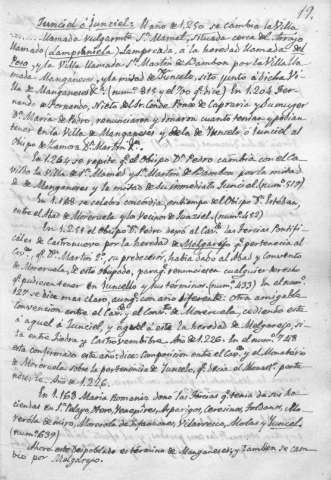 19.
Junciel ó Iunciel: El año de 1250 se cambia la Villa
llamada vulgarmte. Sn. Mamet, situada cerca de Arroyo
llamado (Lampreanela) Lampreada, a la heredad llamada del
Poso, y la Villa llamada Sn. Martin de Bamba por la Villa lla
mada Manganeses, y la mitad de Junciel, sito junto á dicha Vi
lla de Manganeses &c. (numº 815 y el 790 qe. dice) En 1204 Fer
nando Fernandz. Nieto del Sr. Conde Ponce de Capraria y su muger
Dª Maria de Pedro, renunciaron y donaron cuanto tenian y podian
tener en la Villa de Manganeses y de la de Junciel ó Iunciel al
Obispo de Zamora Dn. Martin 2º.
En 1264 se repite qe. el Obispo Dn. Pedro cambia con el Ca
vildo la Villa de Sn. Mamed y Sn. Martin de Bamba por la mitad
de Manganeses y la mitad de su inmediato Junciel (numº 519)
En 1168 se celebró concordia, en tiempo del Obispo Dn. Esteban,
entre el Abad de Moreruela y los Vecinos de Junciel. (numº 452)
En 1251 el Obispo Dn. Pedro dejó al Cavdo. las Tercias Pontifi
cales de Castronuevo por la heredad de Melgarejo qe. pertenecia al
Cavdo. qe. Dn. Martin 2º, su predecesor, había dado al Abad y Convento
de Moreruela, de este obispado, para qe. renunciasen cualquier derecho
qe. pudiesen tener en Juncello y sus términos, (numº 433) En el numº
121 se dice mas claro, aunqe. con año diferente. Otra amigable
Convencion entre el Cavdo. y el Convto. de Moreruela, cediendo este
á aquel á Junciel, y aquel á este la heredad de Melgarejo, si
ta entre Indra y Castroverdibua. Año de 1226. En el numº 748
está confirmado este año: dice: Composicion entre el Cavdo. y el Monasterio
de Moreruela sobre la pertenencia de Junciel, qe. tenia el Monastº. por
Año de 1226.
En 1168 Maria Romaniz dona las Tercias qe. tenia de sus ha
ciendas en Sn. Pelayo, Otero, Venepires, Aspariegos, Cerecinos, Fordsanos,
de muro, Moreruela de Infanzones, Villarrinca, Molas y Junciel.
(numº 639)
Ahora este despoblado es término de Manganeses, y tambien se cam
bió por Melgarejo.